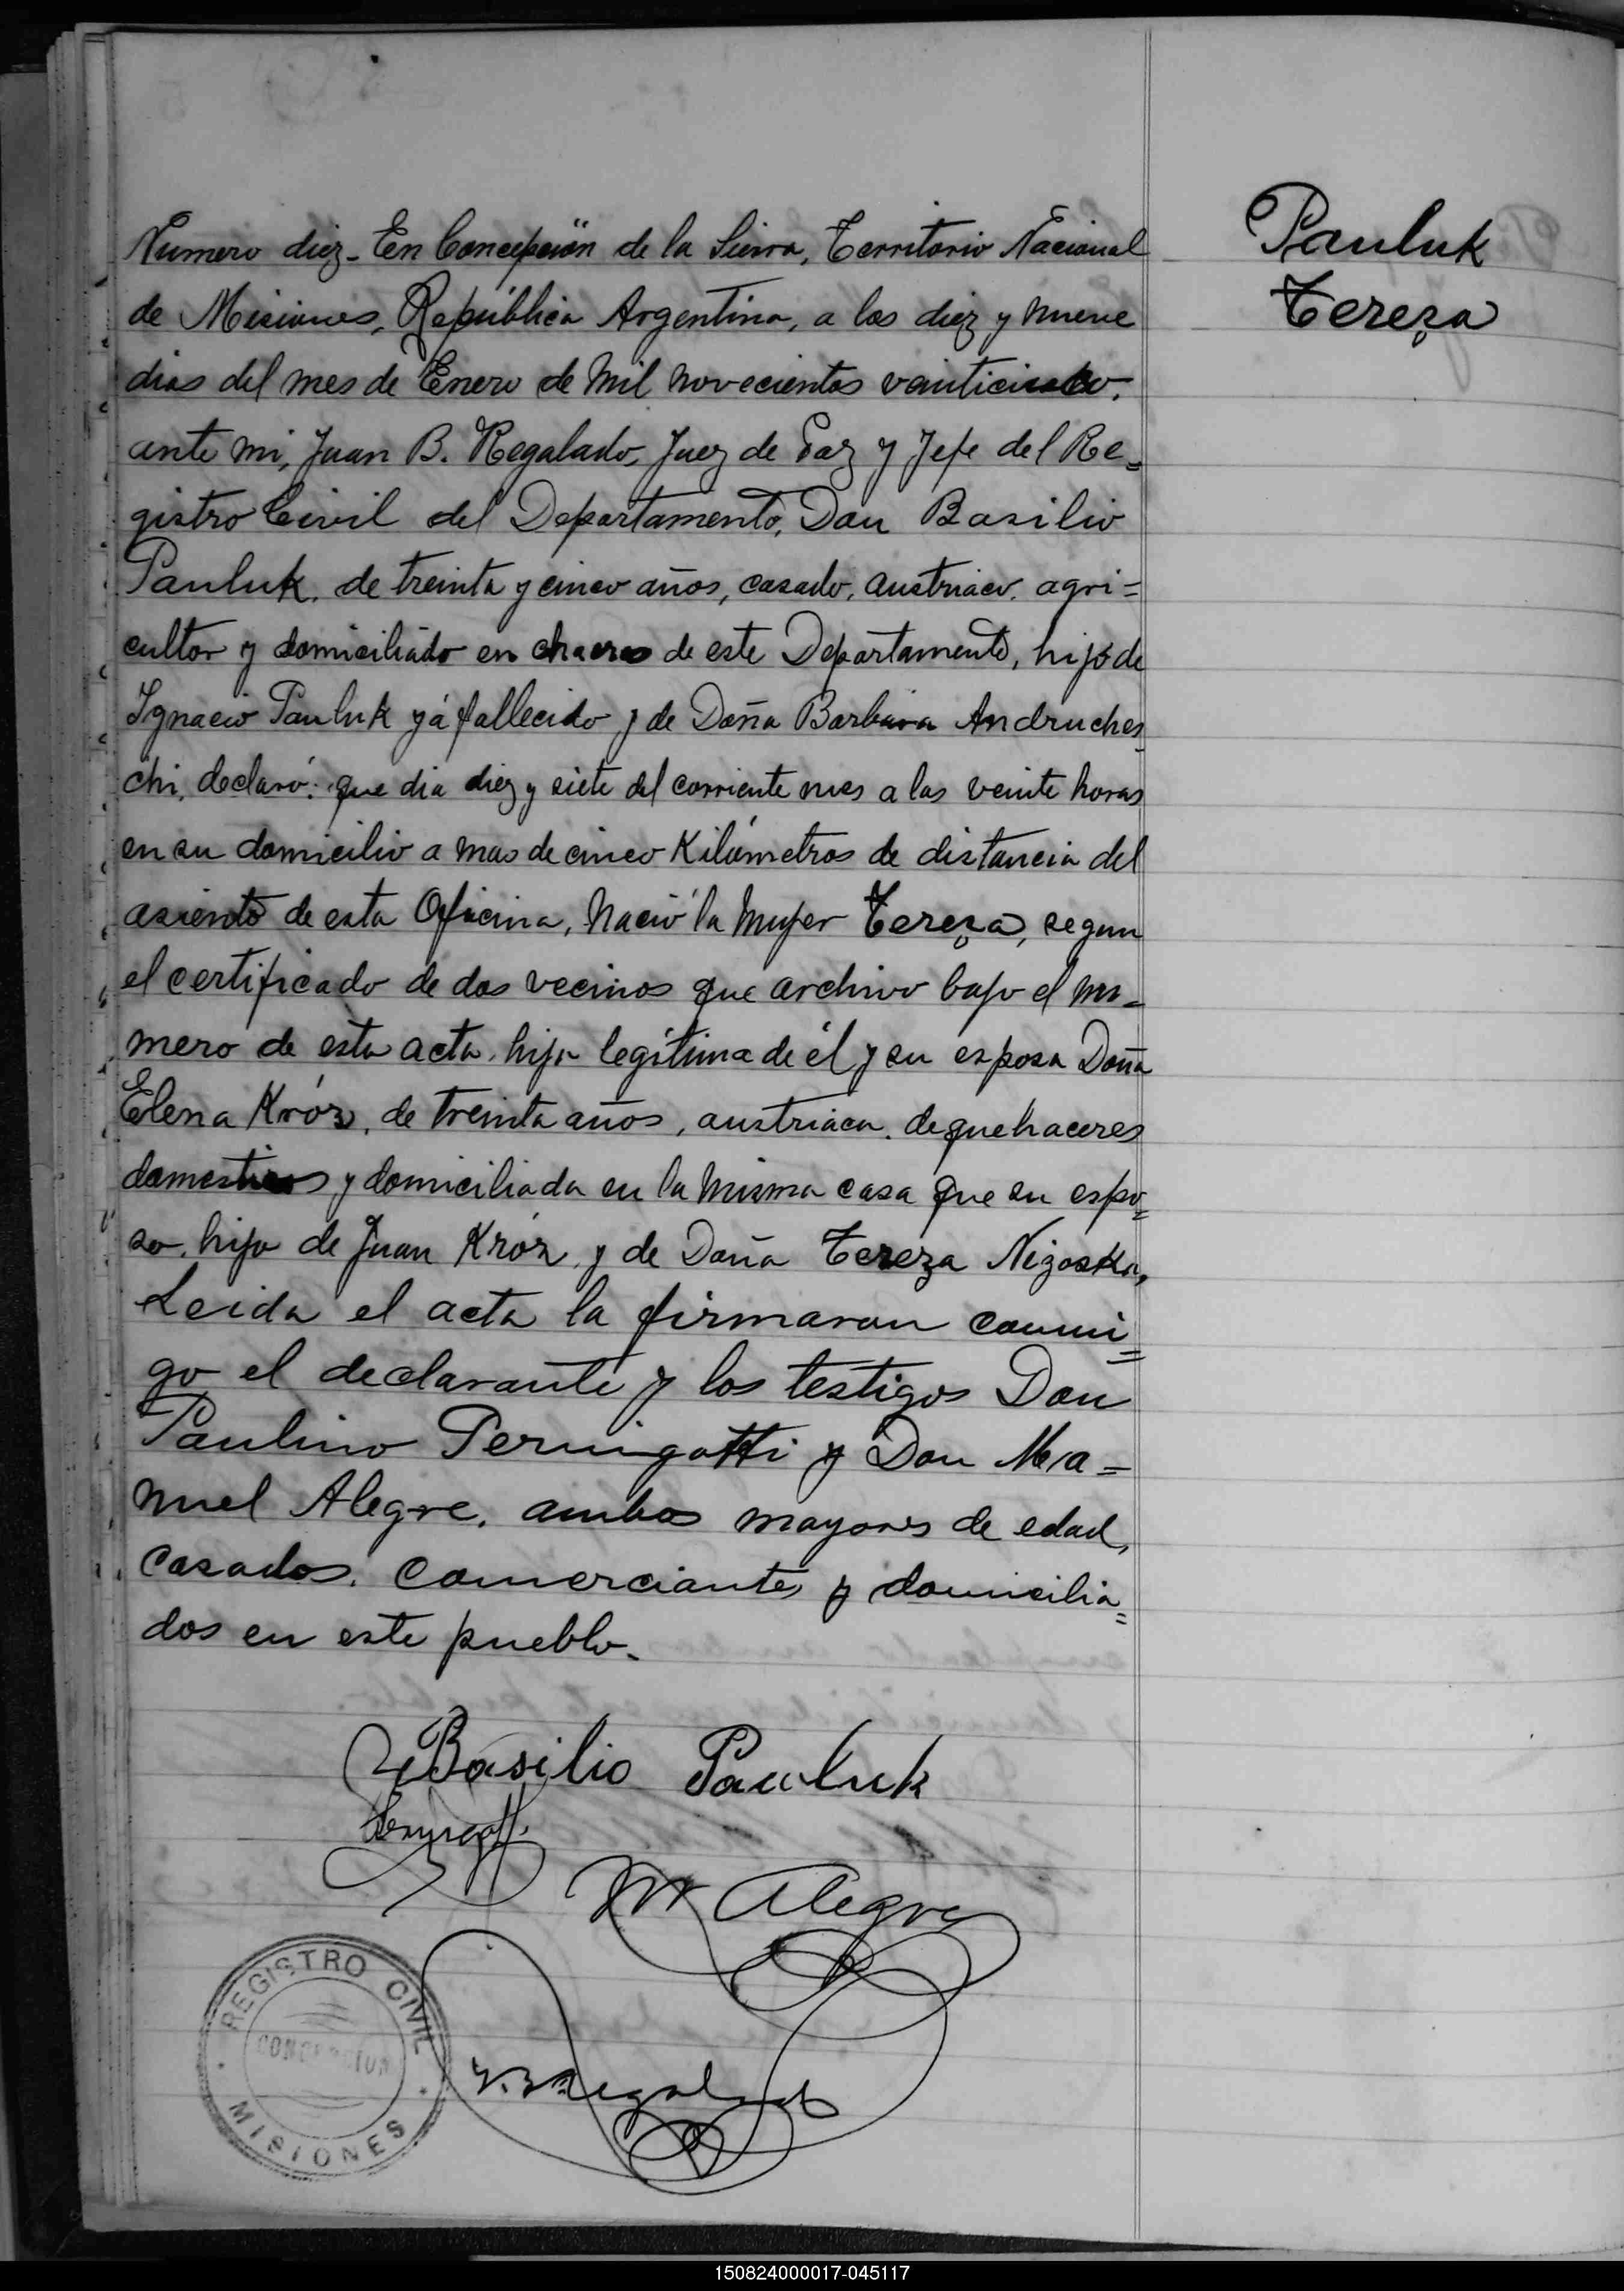 Pauluk
Tereza
Numero diez - En Concepción de la Sierra, Territorio Nacional
de Misiones, República Argentina, a los diez y nueve
dias del mes de Enero de mil novecientos veinticinco,
ante mi, Juan B. Regalado, Juez de Paz y Jefe del Re=
gistro Civil del Departamento, Don Basilio
Pauluk, de treinta y cinco años, casado, austriaco, agri=
cultor y domiciliado en chacras de este Departamento, hijo de
Ignacio Pauluk yá fallecido y de Doña Barbara Andruches
chi, declaró: que dia diez y siete del corriente mes a las veinte horas
en su domicilio a mas de cinco Kilómetros de distancia del
asiento de esta Oficina, nació la mujer Tereza, segun
el certificado de dos vecinos que archivo bajo el nu=
mero de esta acta, hija legítima de él y su esposa Doña
Elena Króz, de treinta años, austriaca, de quehaceres
domesticos y domiciliada en la misma casa que su espo=
so, hija de Juan Króz y de Doña Tereza Nizoska,
Leida el acta la firmaron conmi=
go el declarante y los testigos Don
Paulino Peringotti y Don Ma=
nuel Alegre, ambos mayores de edad,
casados, comerciantes y domicilia=
dos en este pueblo.
Basilio Pauluk
M Alegre
J. B. Regalado
REGISTRO CIVIL
CONCEPCION
MISIONES
150824000017-045117